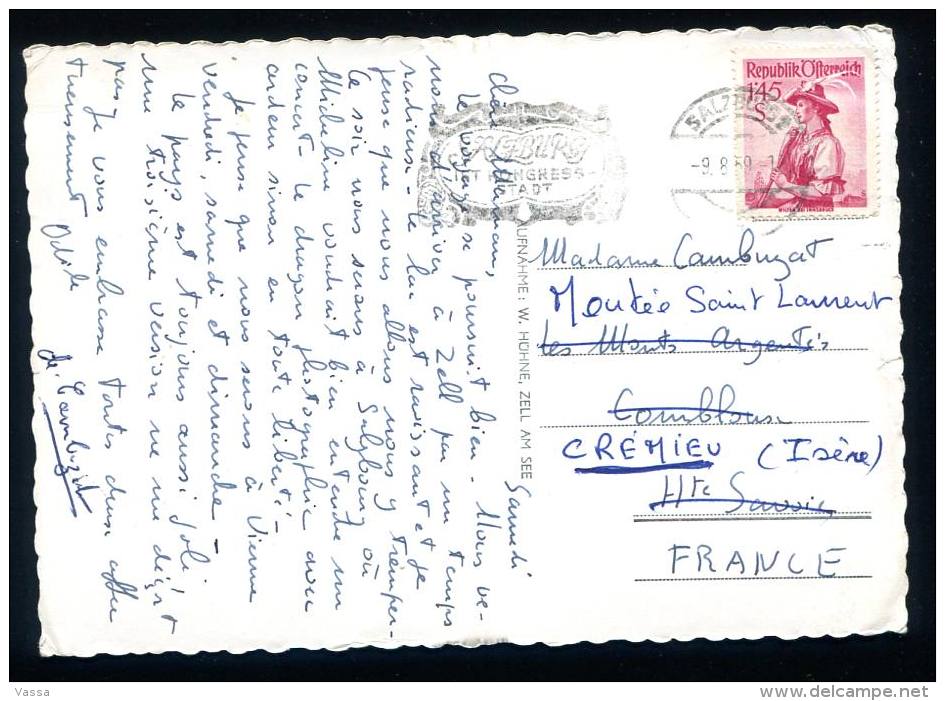 Samedi
Chère Maman,
Le voyage se poursuit bien - Nous ve-
nons d'arriver à Zell par un temps
radieux - le lac est ravissant et je
pense que nous allons nous y tremper -
Ce soir nous serons à Salzbourg où
Micheline voudrait bien entendre un
concert - Le
en toute liberté -
Je pense que nous serons à Vienne
vendredi, samedi et dimanche -
Le pays est toujours aussi joli
une troisième version ne me déçoit
pas, Je vous embrasse toutes deux affec
tueusement Odile
de Cambuzat
AUFNAHME: W. HÖHNE, ZELL AM SEE
SALZBURG
IST KONGRESS-
STADT
SALZBURG
-9.8.59-1
Republik Österreich
1'45
S
Madame Cambuzat
Montée Saint Laurent
Les Monts Argentés
Combloux
CRÉMIEU (Isère)
Hte Savoie
FRANCE
Vassa
www.delcampe.net